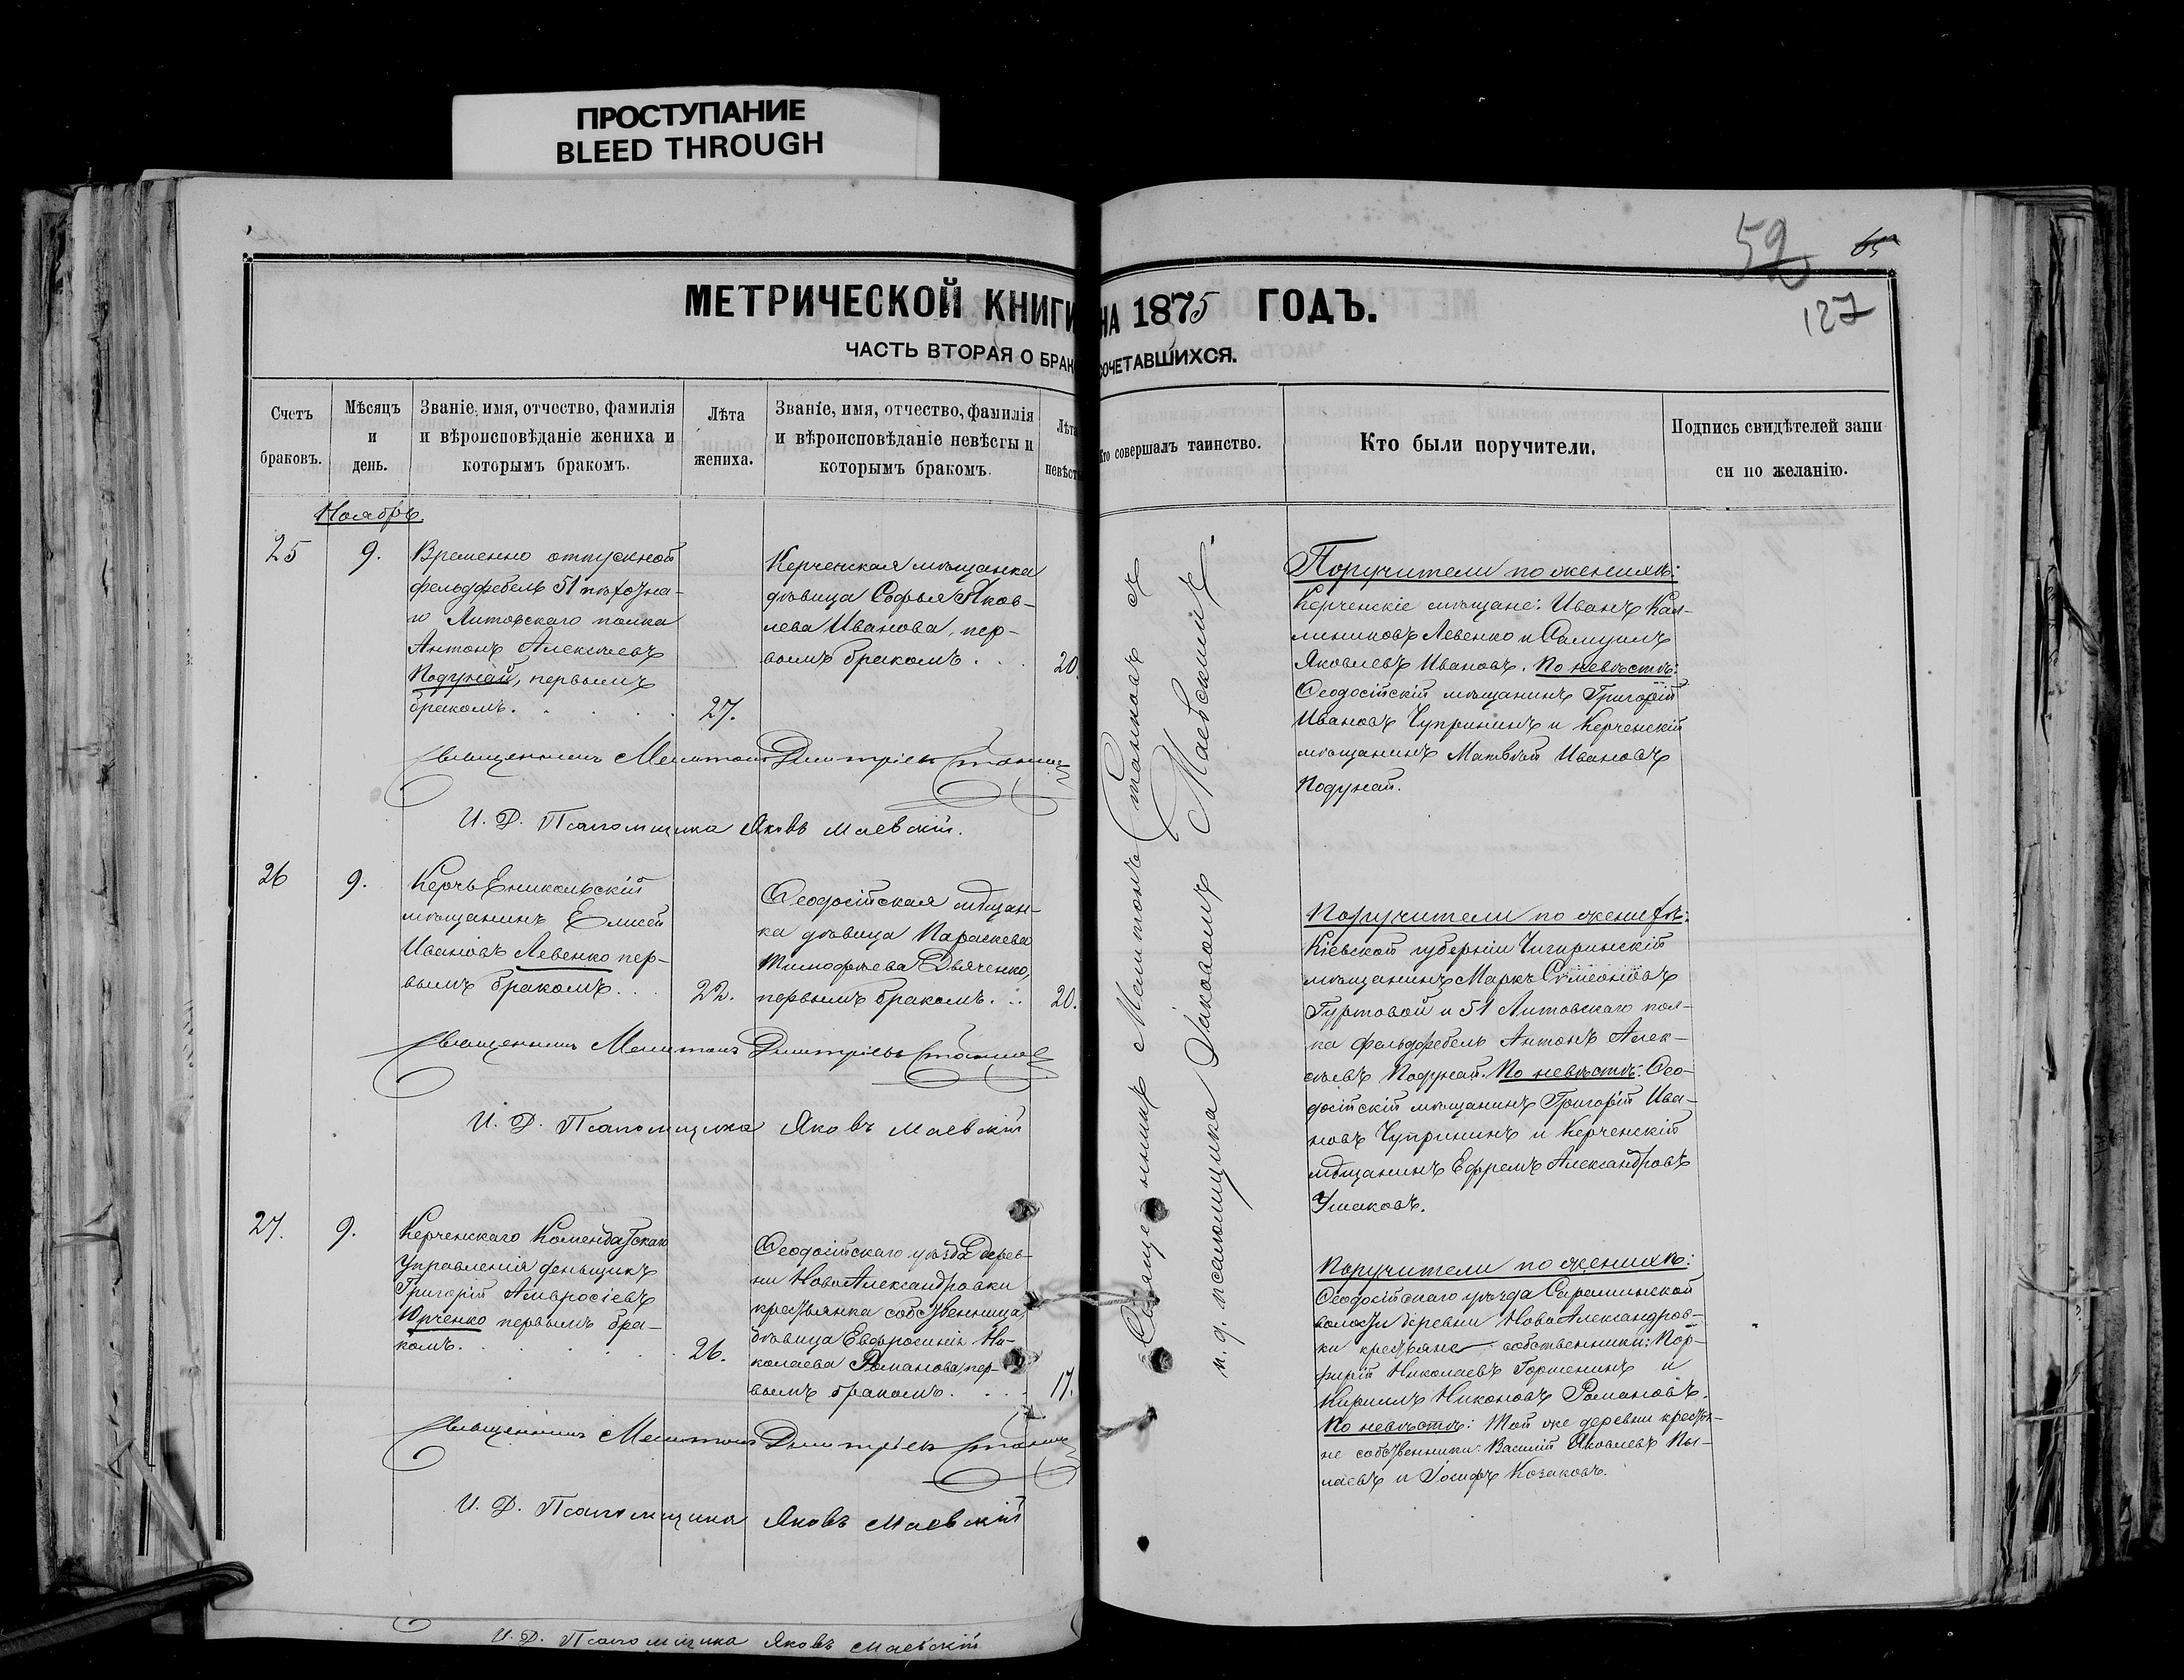 ПРОСТУПАНИЕ
BLEED THROUGH
52
65
127
МЕТРИЧЕСКОЙ КНИГИ НА 1875 ГОДЪ.
ЧАСТЬ ВТОРАЯ О БРАКОСОЧЕТАВШИХСЯ.
Счетъ
браковъ.
Мѣсяцъ
и
день.
Званіе, имя, отчество, фамилія
и вѣроисповѣданіе жениха и
которымъ бракомъ.
Лѣта
жениха.
Званіе, имя, отчество, фамилія
и вѣроисповѣданіе невѣсты и
которымъ бракомъ.
Лѣта
невѣсты
Кто совершалъ таинство.
Кто были поручители.
Подпись свидѣтелей запи
си по желанію.
Ноябрь.
25
9.
Временно отпускной
фельдфебель 51 пѣхотна-
го Литовскаго полка
Антонъ Алексѣевъ
Подунай, первымъ
бракомъ.
27.
Керченская мѣщанка
дѣвица Софья Яков-
лева Иванова, пер-
вымъ бракомъ.
20.
Поручители по женихѣ:
Керченскіе мѣщане: Иванъ Кал-
линиковъ Левенко и Самуилъ
Яковлевъ Ивановъ. По невѣстѣ:
Ѳеодосійскій мѣщанинъ Григорій
Ивановъ Чупринъ и Керченскій
мѣщанинъ Матвѣй Ивановъ
Подунай.
Священникъ Мелитонъ Димитріевъ Станковъ
И. Д. Псаломщика Яковъ Маевскій.
26
9.
Керчь Еникольскій
мѣщанинъ Елисей
Ивановъ Левенко пер-
вымъ бракомъ.
22.
Ѳеодосійская мѣщан-
ка дѣвица Параскева
Тимофѣева Дьяченко,
первымъ бракомъ.
20.
Поручители по женихѣ:
Кіевской губерніи Чигиринскій
мѣщанинъ Маркъ Симеоновъ
Гуртовой и 51 Литовскаго пол-
ка фельдфебель Антонъ Алек-
сѣевъ Подунай. По невѣстѣ: Ѳео-
досійскій мѣщанинъ Григорій Ива-
новъ Чупринъ и Керченскій
мѣщанинъ Ефремъ Александровъ
Ушаковъ.
Священникъ Мелитонъ Димитріевъ Станковъ
И. Д. Псаломщика Яковъ Маевскій
27.
9.
Керченскаго Комендатскаго
Управленія деньщикъ
Григорій Амвросіевъ
Юрченко первымъ бра-
комъ.
26.
Ѳеодосійскаго уѣзда дерев-
ни НовоАлександровки
крестьянка собственница,
дѣвица Евфросинія Ни-
колаева Романова, пер-
вымъ бракомъ.
17.
Поручители по женихѣ:
Ѳеодосійскаго уѣзда Сараминской
волости деревни НовоАлександров-
ки крестьяне собственники: Пор-
фирій Николаевъ Горшенинъ и
Кириллъ Никоновъ Романовъ.
По невѣстѣ: Той же деревни крестья-
не собственники: Василій Яковлевъ Пы-
лаевъ и Іосифъ Козаковъ.
Священникъ Мелитонъ Димитріевъ Станковъ
И. Д. Псаломщика Яковъ Маевскій
Священникъ Мелитонъ Станковъ
и. д. псаломщика Іаковъ Маевскій.
И. Д. Псаломщика Яковъ Маевскій